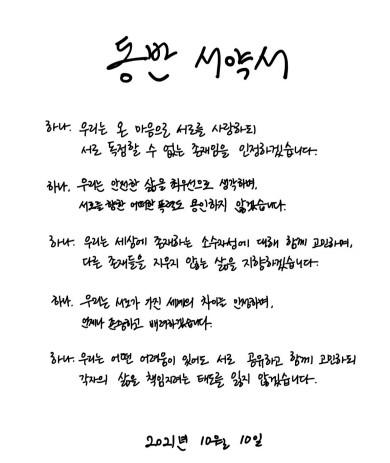 동반 서약서
하나. 우리는 온 마음으로 서로를 사랑하되
서로 독점할 수 없는 존재임을 인정하겠습니다.
하나. 우리는 안전한 삶을 최우선으로 생각하며,
서로를 향한 어떠한 폭력도 용인하지 않겠습니다.
하나. 우리는 세상에 존재하는 소수자성에 대해 함께 고민하며,
다른 존재들을 지우지 않는 삶을 지향하겠습니다.
하나. 우리는 서로가 가진 세계의 차이를 인정하며,
언제나 존중하고 배려하겠습니다.
하나. 우리는 어떤 어려움이 있어도 서로 공유하고 함께 고민하되
각자의 삶을 책임지려는 태도를 잃지 않겠습니다.
2021년 10월 10일